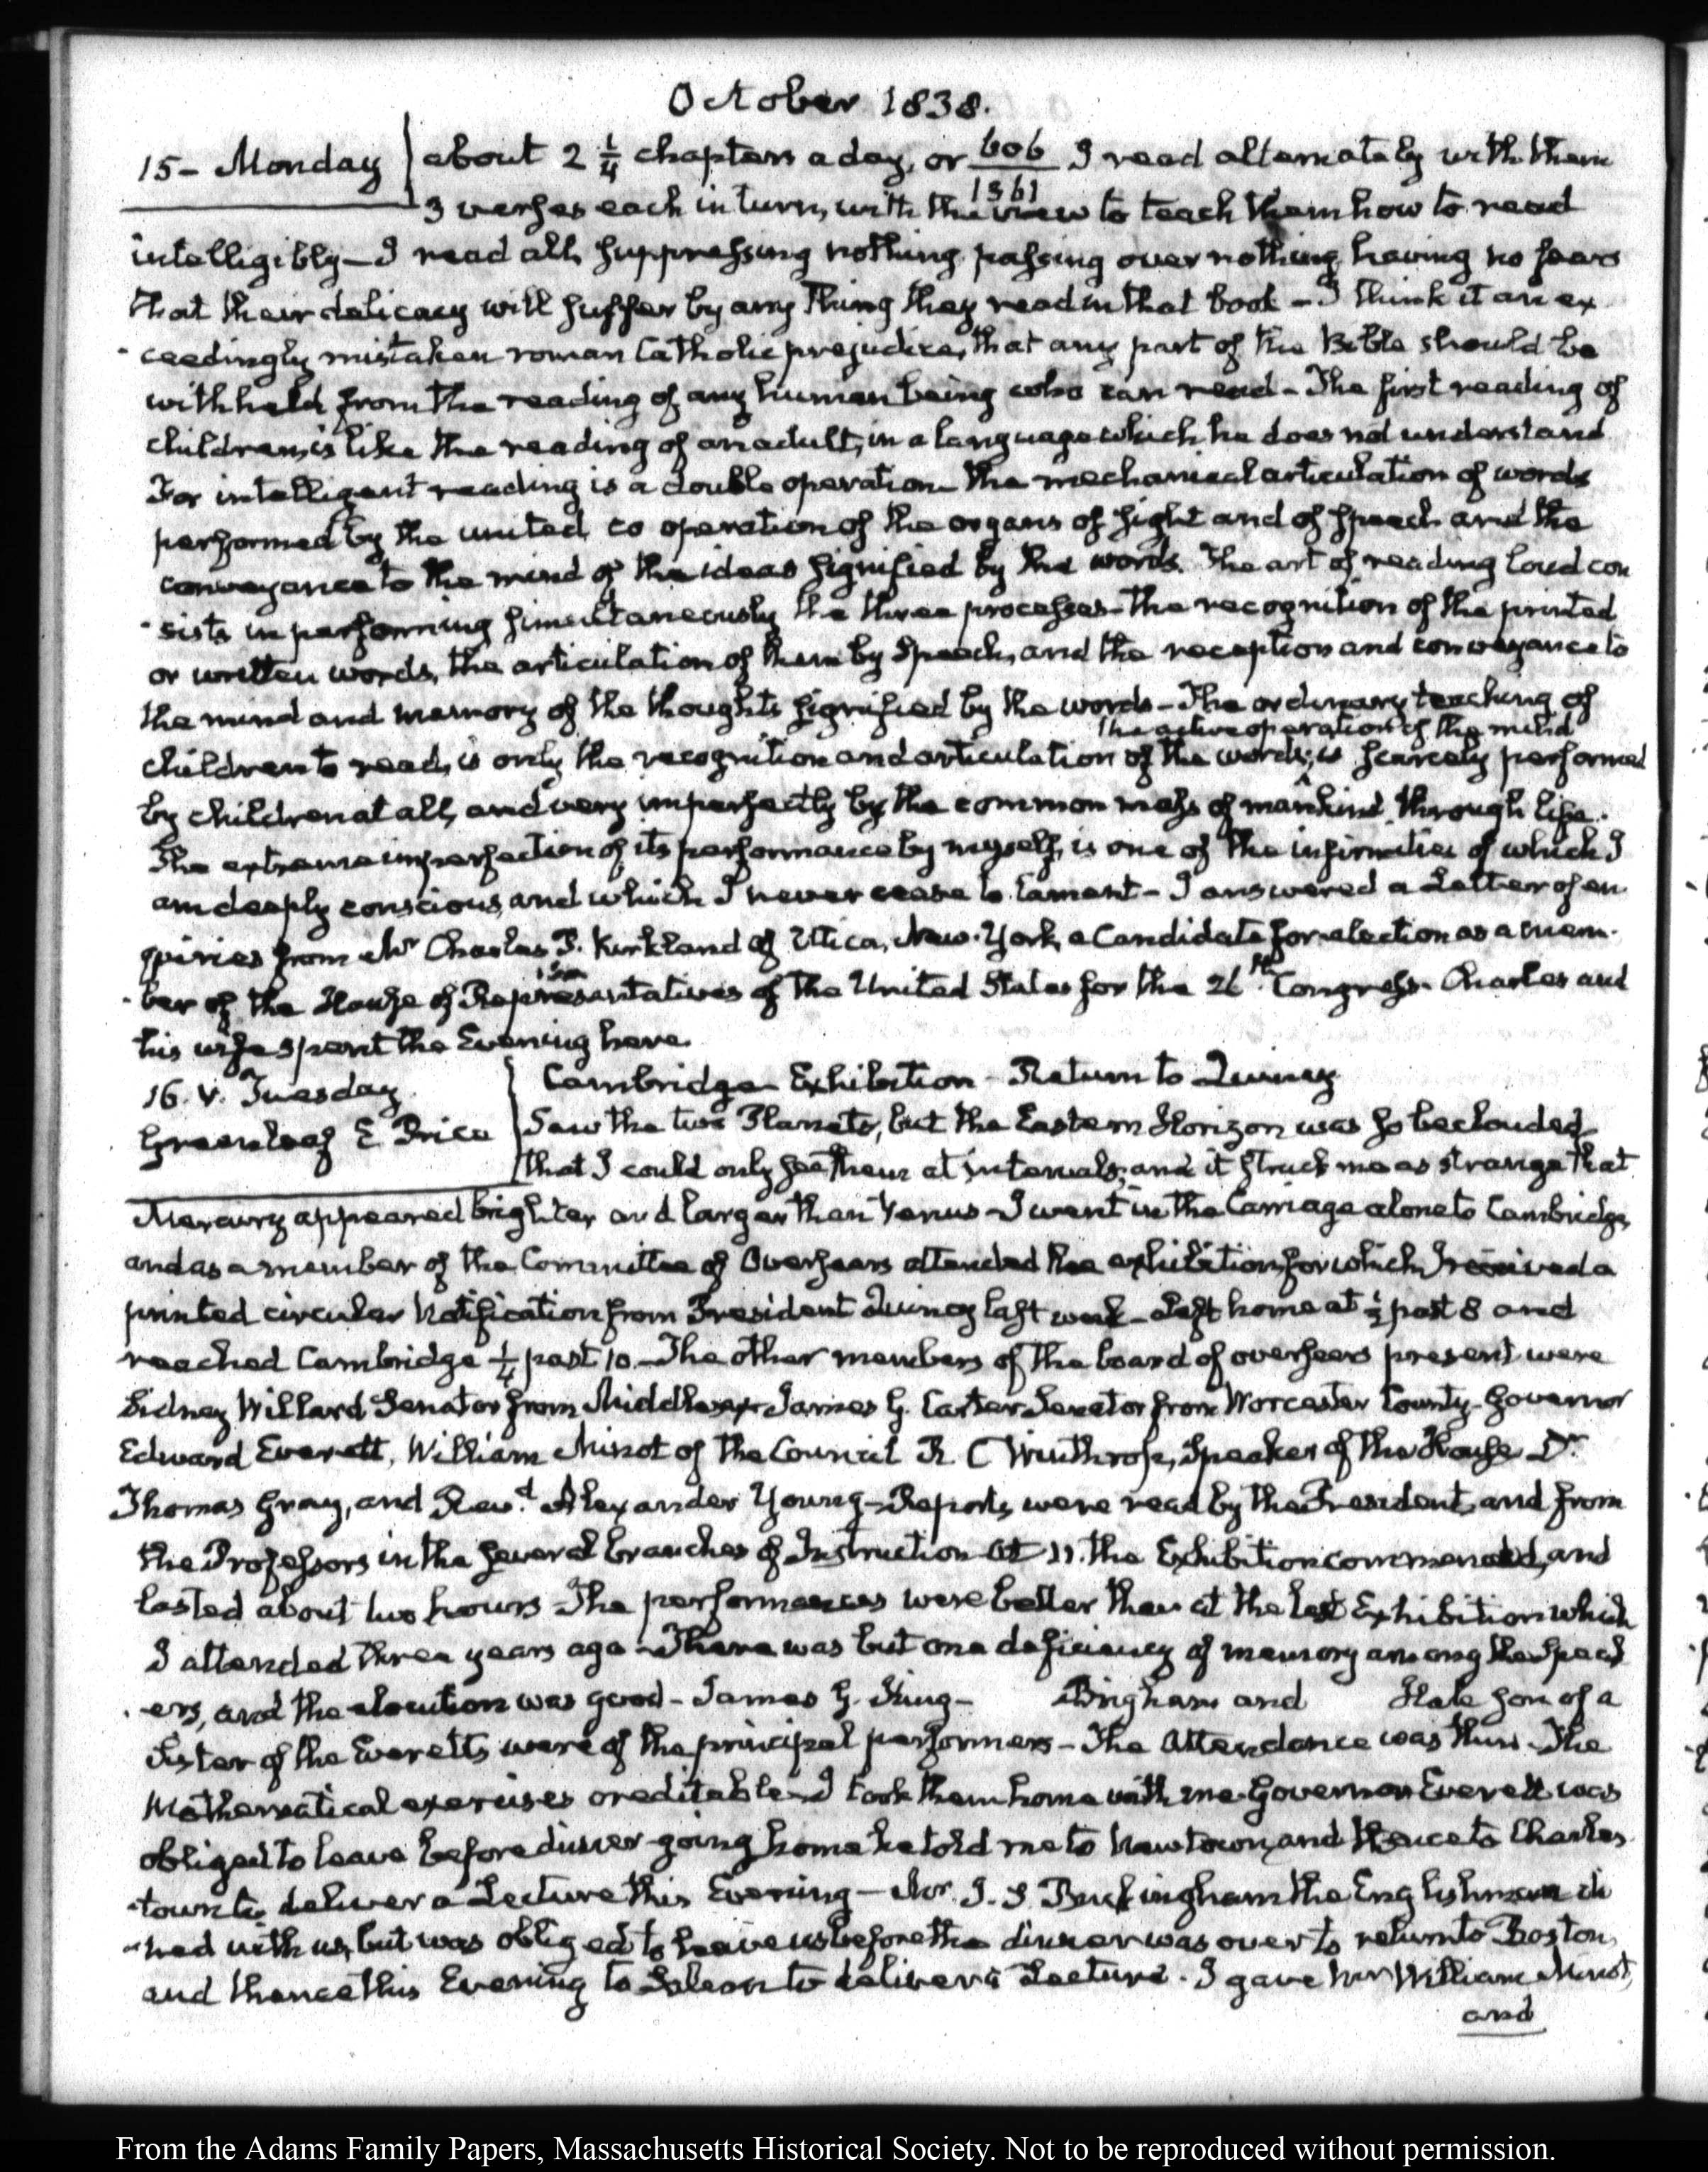 October 1838.
15 - Monday
about 2 1/4 chapters a day, or 606/1361 I read alternately with them
3 verses each in turn, with the view to teach them how to read
intelligibly - I read all, suppressing nothing, passing over nothing, having no fears
that their delicacy will suffer by any thing they read in that book - I think it an ex
-ceedingly mistaken roman Catholic prejudice, that any part of the Bible should be
withheld from the reading of any human being who can read - The first reading of
children, is like the reading of an adult, in a language which he does not understand
For intelligent reading is a double operation - the mechanical articulation of words
performed by the united co operation of the organs of sight and of speech and the
conveyance to the mind of the ideas signified by the words. The art of reading loud con
-sists in performing simultaneously the three processes - the recognition of the printed
or written words, the articulation of them by speech, and the reception and conveyance to
the mind and memory of the thoughts signified by the words - The ordinary teaching of
the active operation of the mind
children to read, is only the recognition and articulation of the words; ^ is scarcely performed
by children at all, and very imperfectly by the common mass of mankind through life.
The extreme imperfection of its performance by myself, is one of the infirmities of which I
am deeply conscious, and which I never cease to lament - I answered a Letter of en
quiries from Mr Charles P. Kirkland of Utica, New-York, a Candidate for election as a mem-
-ber of the House of Representatives of the United States for the 26th Congress. Charles and
his wife spent the Evening here.
16. V. Tuesday.
Greenleaf E Price
Cambridge - Exhibition - Return to Quincy
Saw the two Planets, but the Eastern Horizon was so beclouded
that I could only see them at intervals; and it struck me as strange that
Mercury appeared brighter and larger than Venus - I went in the Carriage alone to Cambridge,
and as a member of the Committee of Overseers attended the exhibition, for which I received a
printed circular Notification from President Quincy last week - left home at 1/2 past 8 and
reached Cambridge 1/4 past 10 - The other members of the board of overseers present were
Sidney Willard Senator from Middlesex - James G. Carter Senator from Worcester County - Governor
Edward Everett, William Minot of the Council R. C Winthrop, Speaker of the House Dr
Thomas Gray, and Revd. Alexander Young - Reports were read by the President, and from
the Professors in the several branches of Instruction - At 11. the Exhibition commenced, and
lasted about two hours - The performances were better than at the last Exhibition which
I attended three years ago - There was but one deficiency of memory among the Speak
-ers, and the elocution was good - James G. King - Bingham and Hale son of a
Sister of the Everetts were of the principal performers - The Attendance was thin - The
Mathematical exercises creditable - I took them home with me - Governor Everett was
obliged to leave before dinner - going home he told me to Newtown, and thence to Charles
-town to deliver a Lecture this Evening - Mr. J. S. Buckingham the Englishman di
-ned with us, but was obliged to leave us before the dinner was over to return to Boston,
and thence this Evening to Salem to deliver a Lecture. I gave Mr William Minot,
and
From the Adams Family Papers, Massachusetts Historical Society. Not to be reproduced without permission.